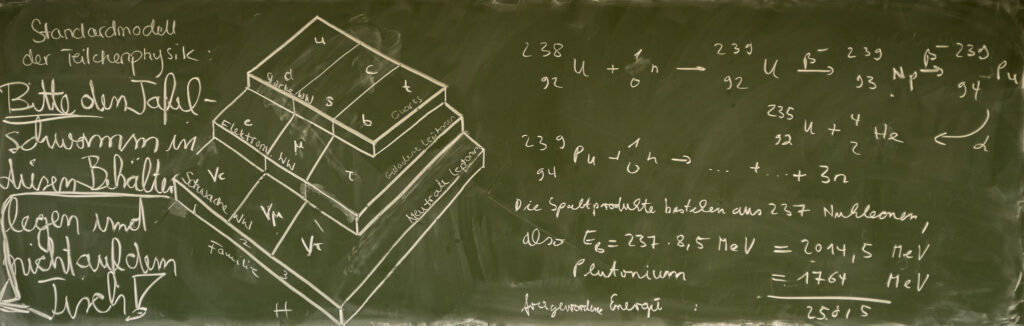 Standardmodell
der Teilchenphysik:
Bitte den Tafel-
schwamm in
diesen Behälter
legen und
nicht auf dem
Tisch!
u
d c
s t
b
Farbe WW
Quarks
e
Elektrom. WW
μ
τ
Geladene Leptonen
νe
Schwache WW
νμ
ντ
Neutrale Leptonen
1 2 3
Familie
H
²³⁸₉₂U + ¹₀n → ²³⁹₉₂U β⁻→ ²³⁹₉₃Np β⁻→ ²³⁹₉₄Pu
²³⁵₉₂U + ⁴₂He ← α
²³⁹₉₄Pu + ¹₀n → ... + ... + 3n
Die Spaltprodukte bestehen aus 237 Nukleonen,
also E_B = 237 · 8,5 MeV = 2014,5 MeV
Plutonium = 1764 MeV
freigewordene Energie : 250,5